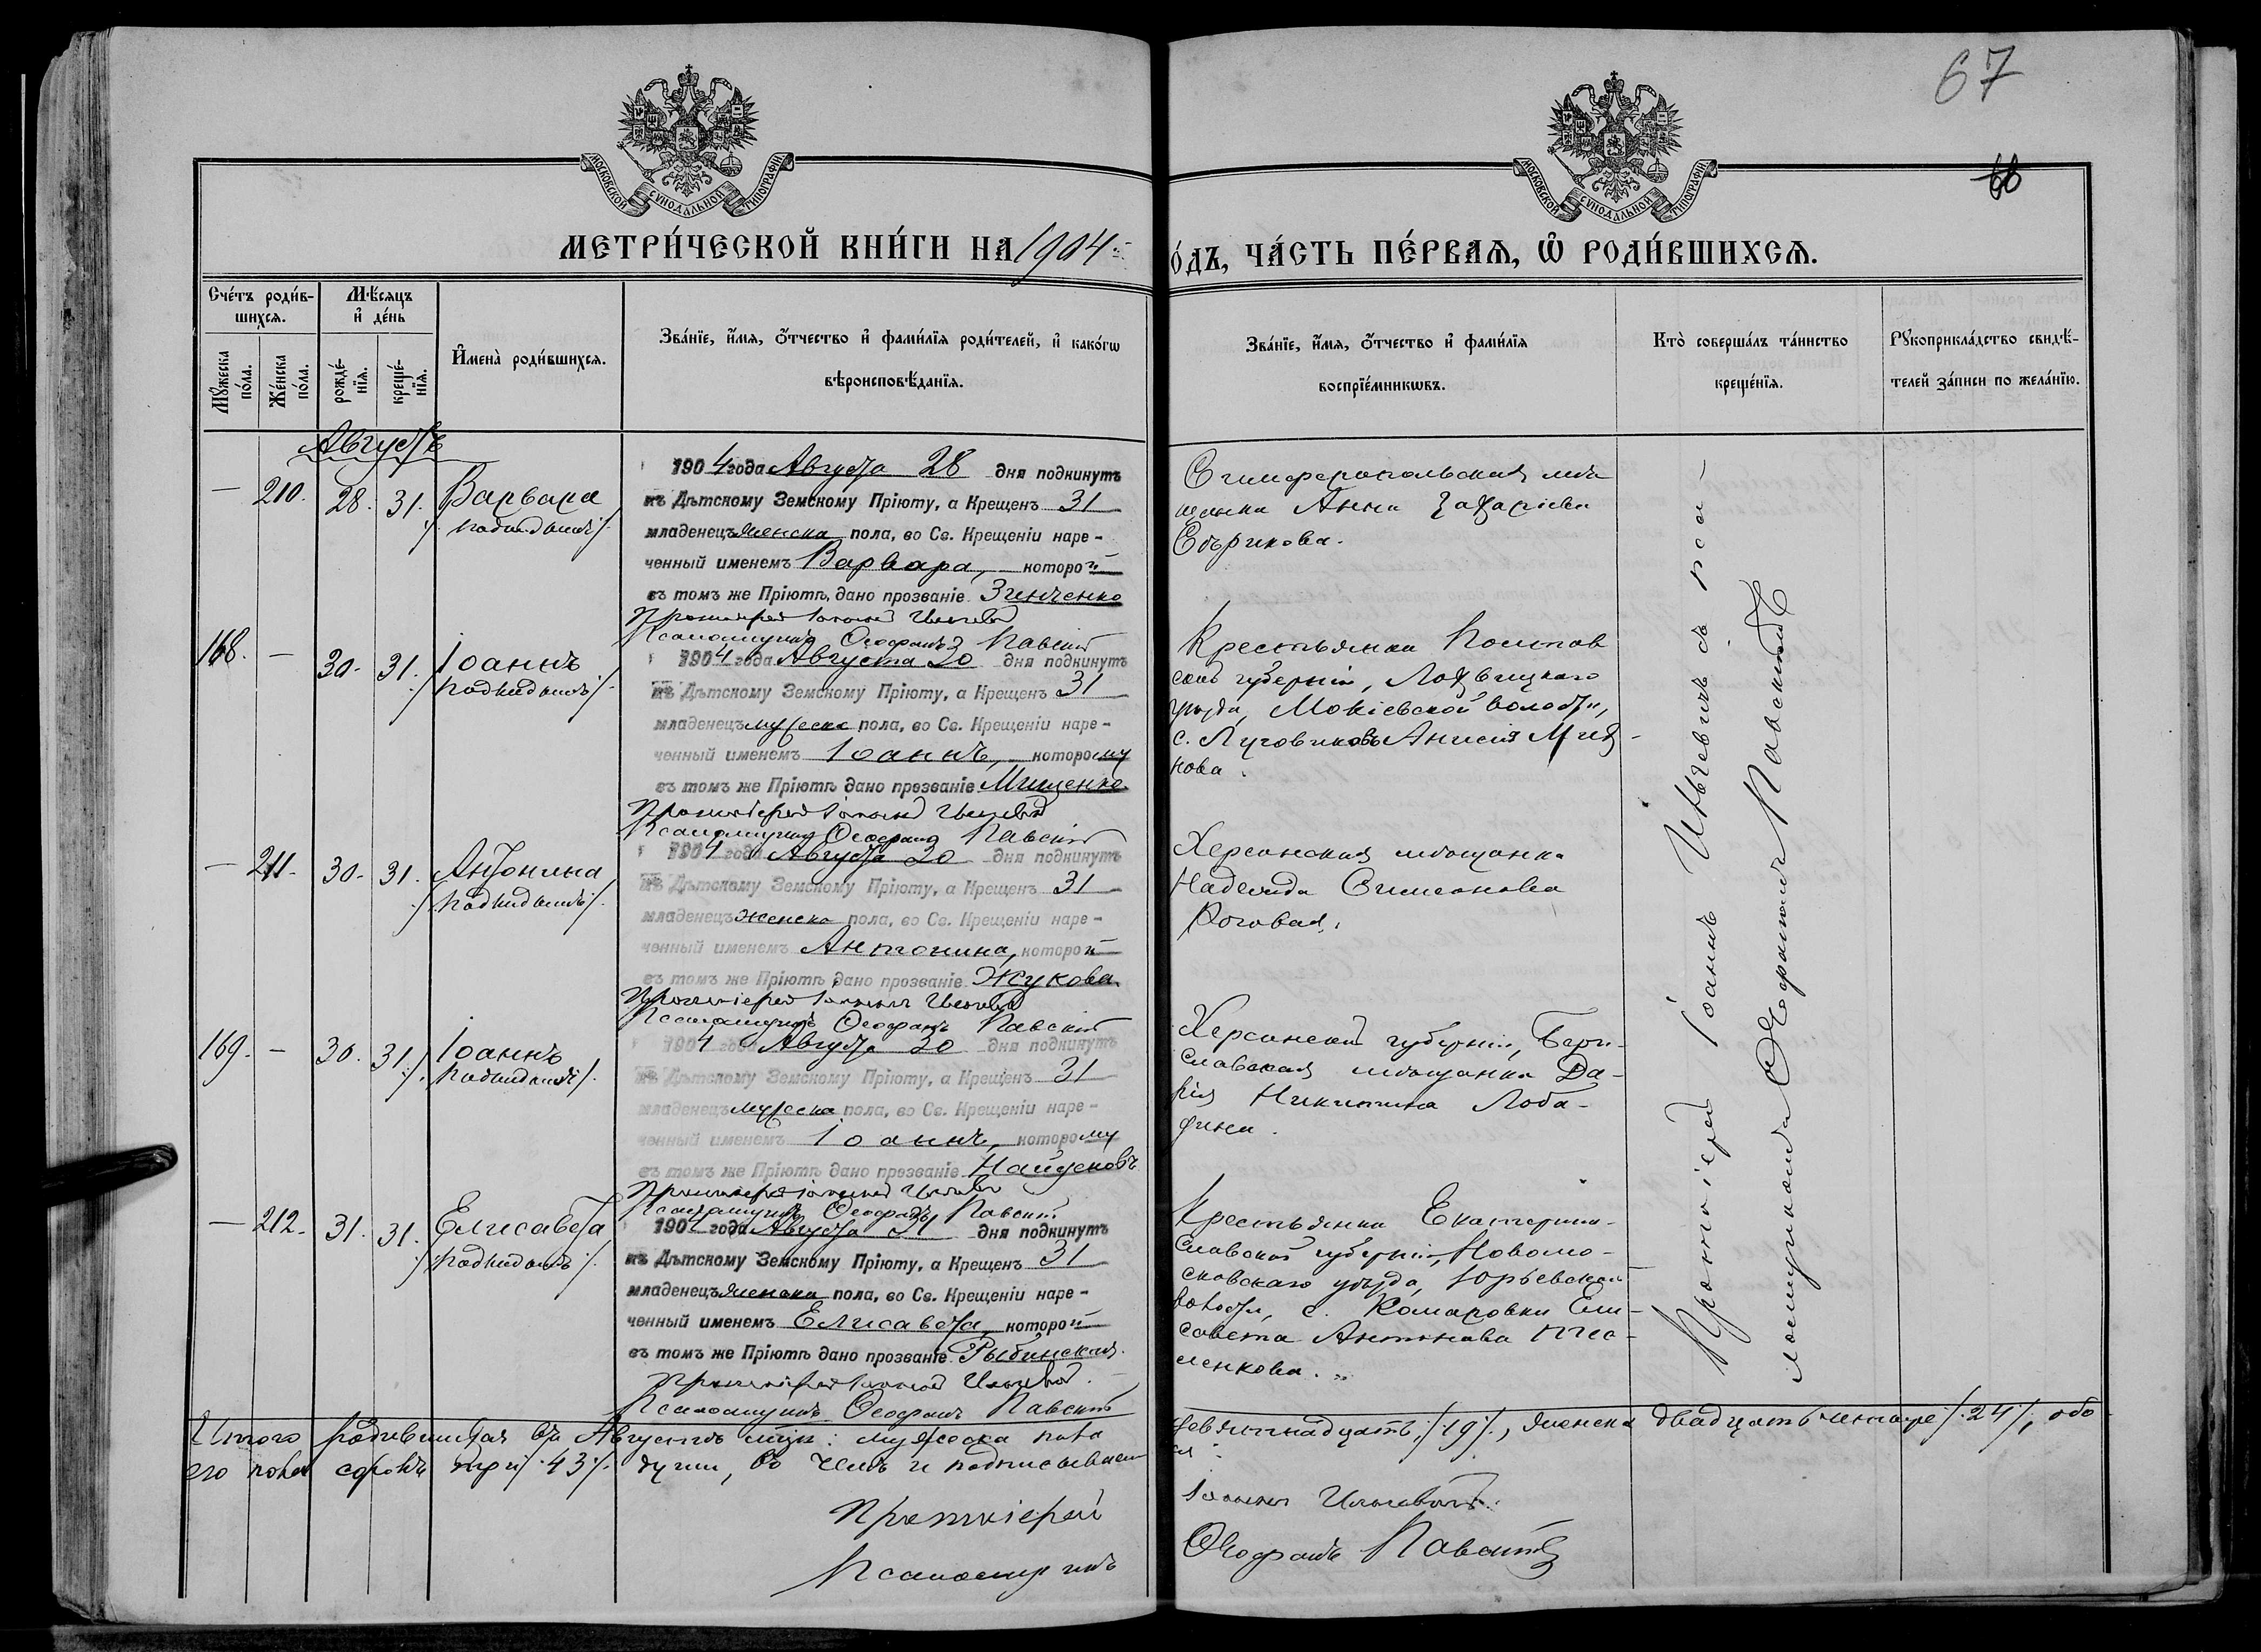 67
66
МОСКОВСКОЙ СѴНОДАЛЬНОЙ ТИПОГРАФІИ
МОСКОВСКОЙ СѴНОДАЛЬНОЙ ТИПОГРАФІИ
МЕТРИ́ЧЕСКОЙ КНИ́ГИ НА 1904
О́ДЪ, ЧА́СТЬ ПЕ́РВАѦ, Ѽ РОДИ́ВШИХСѦ.
Сче́тъ роди́в-
шихсѧ.
Мѣ́сяцъ
и҆ де́нь
Мꙋ́жеска
по́ла.
Же́нска
по́ла.
рожде́-
нїѧ.
креще́-
нїѧ.
И҆мена̀ роди́вшихсѧ.
Зва́нїе, и҆́мѧ, ѻ҆́тчество и҆ фами́лїѧ роди́телей, и҆ како́гѡ
вѣроисповѣ́данїѧ.
Зва́нїе, и҆́мѧ, ѻ҆́тчество и҆ фами́лїѧ
воспрїе́мникѡвъ.
Кто̀ соверша́лъ та́инство
креще́нїѧ.
Рꙋкоприкла́дство свидѣ́-
телей за́писи по жела́нїю.
Августъ
— 210. 28. 31. Варвара
/подкидышъ/.
1904 года Августа 28 дня подкинутъ
къ Дѣтскому Земскому Пріюту, а Крещенъ 31
младенецъ женска пола, во Св. Крещеніи наре-
ченный именемъ Варвара, которой
въ томъ же Пріютѣ дано прозваніе Зинченко
Протоіерей Іоаннъ
Псаломщикъ Ѳеофанъ Павскій
Симферопольская мѣ
щанка Анна Захаріева
168. — 30. 31. Іоаннъ
/подкидышъ/.
1904 года Августа 30 дня подкинутъ
къ Дѣтскому Земскому Пріюту, а Крещенъ 31
младенецъ мужеска пола, во Св. Крещеніи наре-
ченный именемъ Іоаннъ, которому
въ томъ же Пріютѣ дано прозваніе Мищенко
Протоіерей Іоаннъ
Псаломщикъ Ѳеофанъ Павскій
Крестьянка Полтав
ской губерніи, Лохвицкаго
уѣзда, Мокіевской волости,
с. Анисія
нова.
— 211. 30. 31. Антонина
/подкидышъ/.
1904 года Августа 30 дня подкинутъ
къ Дѣтскому Земскому Пріюту, а Крещенъ 31
младенецъ женска пола, во Св. Крещеніи наре-
ченный именемъ Антонина, которой
въ томъ же Пріютѣ дано прозваніе Жукова
Протоіерей Іоаннъ
Псаломщикъ Ѳеофанъ Павскій
Херсонская мѣщанка
Надежда Симеонова
Роговая.
169. — 30. 31. Іоаннъ
/подкидышъ/.
1904 года Августа 30 дня подкинутъ
къ Дѣтскому Земскому Пріюту, а Крещенъ 31
младенецъ мужеска пола, во Св. Крещеніи наре-
ченный именемъ Іоаннъ, которому
въ томъ же Пріютѣ дано прозваніе Найденовъ
Протоіерей Іоаннъ
Псаломщикъ Ѳеофанъ Павскій
Херсонской губерніи, Бери-
славская мѣщанка Да-
рія Никитина
— 212. 31. 31. Елисавета
/подкидышъ/.
190 года Августа 31 дня подкинутъ
къ Дѣтскому Земскому Пріюту, а Крещенъ 31
младенецъ женска пола, во Св. Крещеніи наре-
ченный именемъ Елисавета, которой
въ томъ же Пріютѣ дано прозваніе Рыбинская.
Протоіерей Іоаннъ
Псаломщикъ Ѳеофанъ Павскій
Крестьянка Екатерино-
славской губерніи, Новомо-
сковскаго уѣзда, Юрьевской
волости, с. Комаровки Ели-
савета Антонова
Протоіерей Іоаннъ
Ѳеофанъ Павскій
Итого родившихся въ Августѣ мцѣ: мужеска пола девятнадцать /19/, женска двадцать четыре /24/, обо
его пола сорокъ три /43/ души, въ чемъ и подписываем
ся:
Протоіерей Іоаннъ
Псаломщикъ Ѳеофанъ Павскій